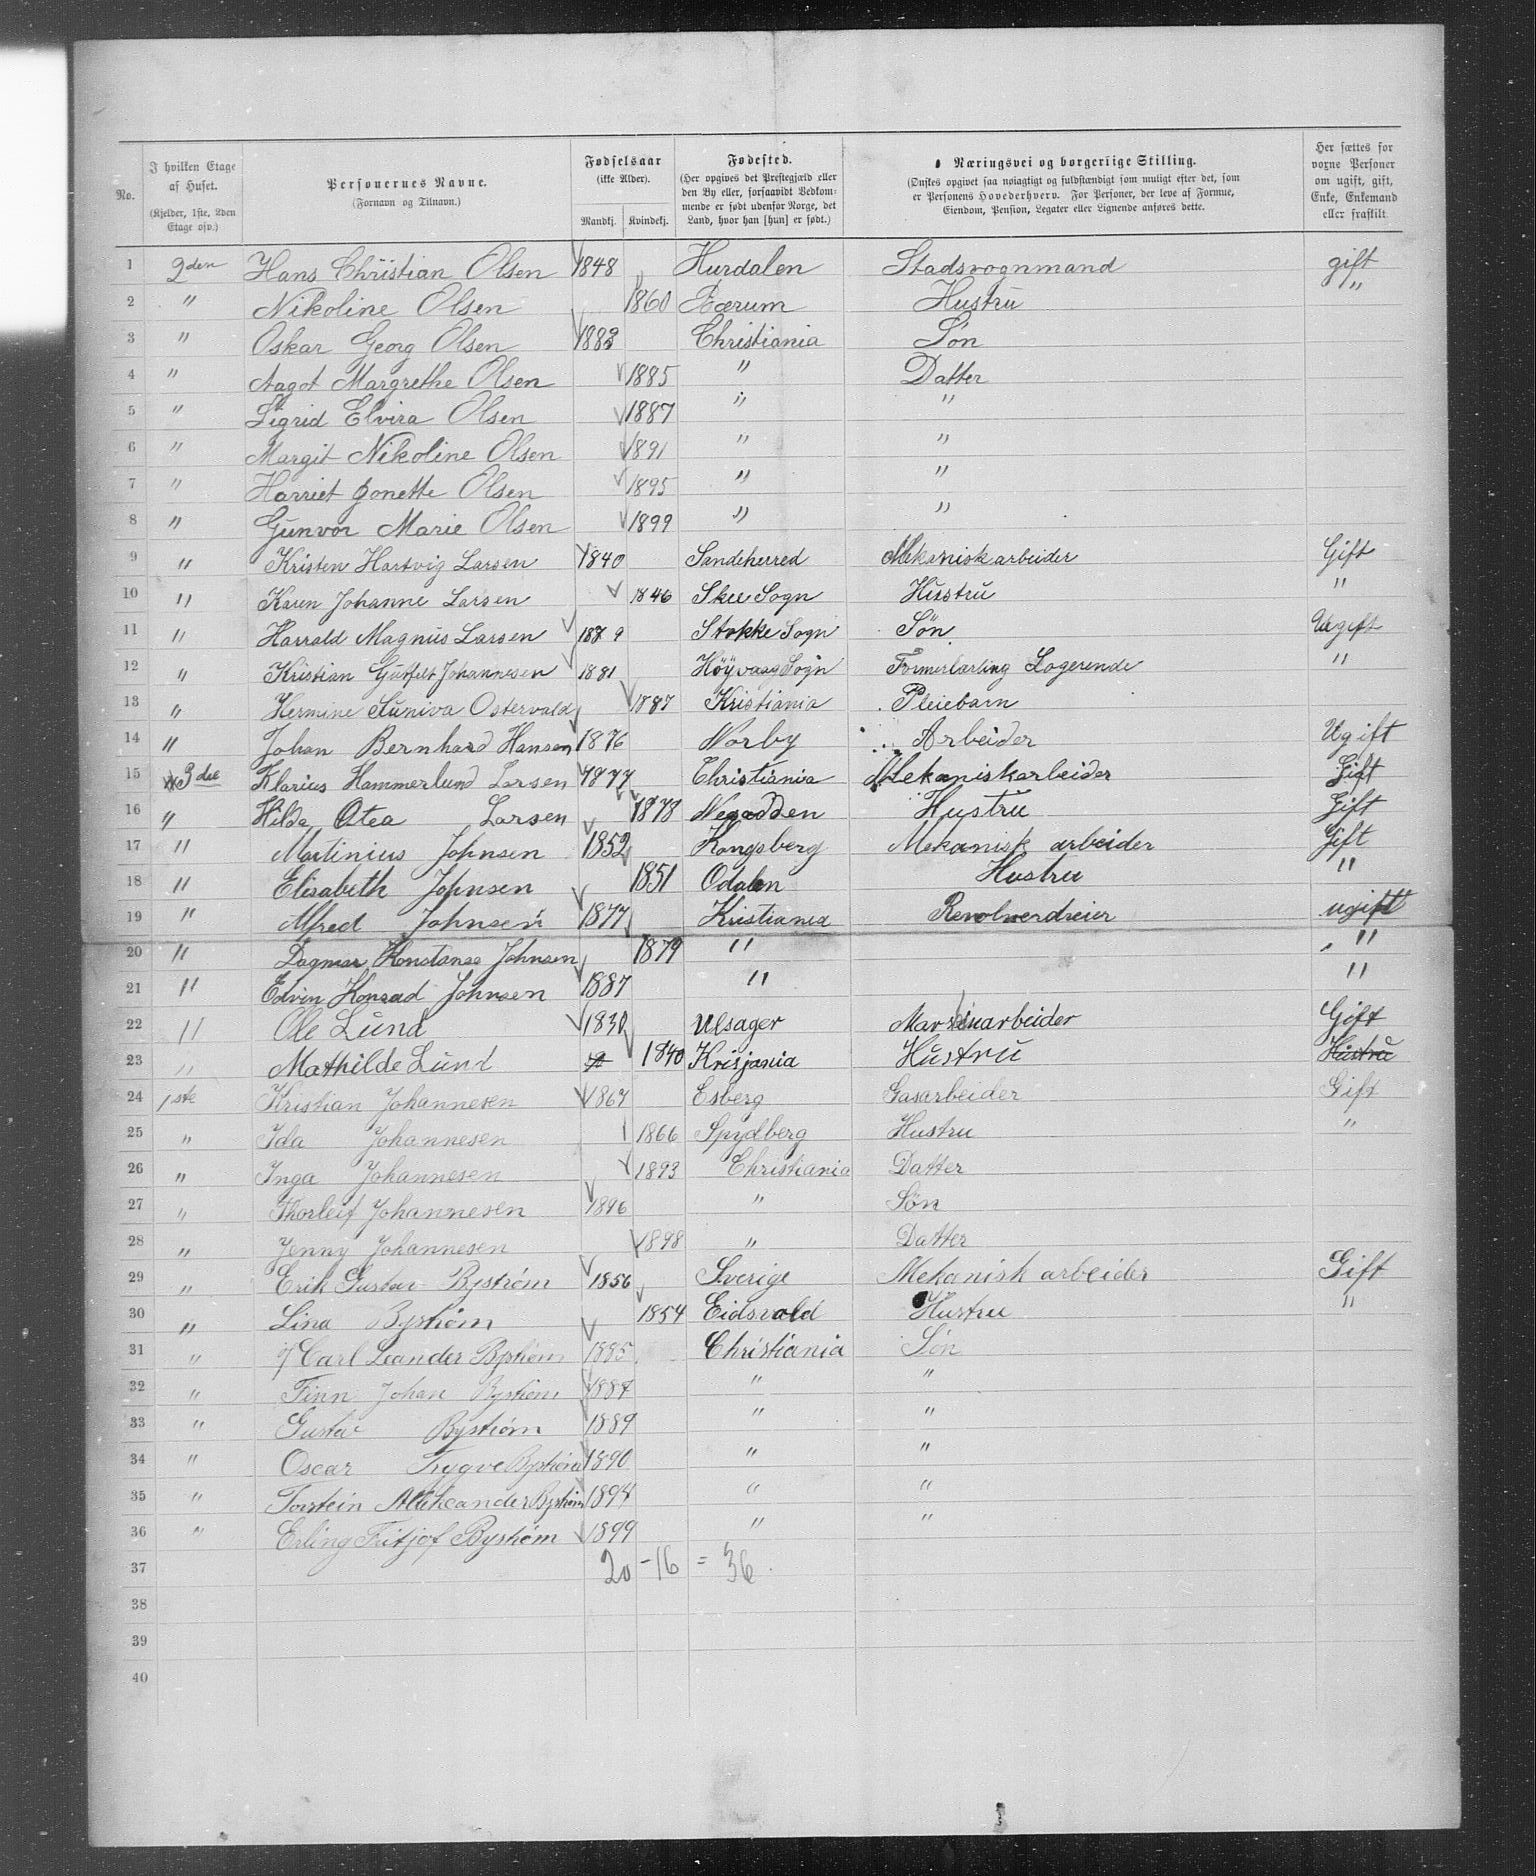 No. | I hvilken Etage af Huset. (Kjelder, 1ste, 2den Etage osv.) | Personernes Navne. (Fornavn og Tilnavn.) | Fødselsaar (ikke Alder). Mandkj. | Kvindekj. | Fødested. (Her opgives det Prestegjæld eller den By eller, forsaavidt Vedkommende er født udenfor Norge, det Land, hvor han [hun] er født.) | Næringsvei og borgerlige Stilling. (Ønskes opgivet saa nøiagtigt og fuldstændigt som muligt efter det, som er Personens Hovederhverv. For Personer, der leve af Formue, Eiendom, Pension, Legater eller Lignende anføres dette. | Her sættes for voxne Personer om ugift, gift, Enke, Enkemand eller fraskilt.
1 2den Hans Christian Olsen 1848 Hurdalen Stadsvognmand gift
2 " Nikoline Olsen 1860 Bærum Hustru "
3 " Oskar Georg Olsen 1883 Christiania Søn
4 " Aagot Margrethe Olsen 1885 " Datter
5 " Sigrid Elvira Olsen 1887 " "
6 " Margit Nikoline Olsen 1891 " "
7 " Harriet Jonette Olsen 1895 " "
8 " Gunvor Marie Olsen 1899 " "
9 " Kristen Hartvig Larsen 1840 Sandeherred Mekanisk arbeider Gift
10 " Karen Johanne Larsen 1846 Skee Sogn Husstru "
11 " Harrald Magnus Larsen 1879 Stokke Sogn Søn Ugift
12 " Kristian Johannesen 1881 Høyvaag Sogn Formerlærling Logerende "
13 " Hermine Suniva Ostervald 1887 Kristiania Pleiebarn
14 " Johan Bernhard Hansen 1876 Norby Arbeider Ugift
15 3die Klarius Hammerlund Larsen 1877 Christiania Mekaniskarbeider Gift
16 " Hilda Otea Larsen 1878 Nesodden Hustru Gift
17 " Martinius Johnsen 1852 Kongsberg Mekanisk arbeider Gift
18 " Elisabeth Johnsen 1851 Odalen Hustru "
19 " Alfred Johnsen 1877 Kristiania Revolverdreier ugift
20 " Dagmar Konstanse Johnsen 1879 " "
21 " Edvin Konrad Johnsen 1887 " "
22 " Ole Lund 1830 Ulsager Marskinarbeider Gift
23 " Mathilde Lund 1840 Krisjania Hustru Hustru
24 1ste Kristian Johannesen 1867 Esberg Gasarbeider Gift
25 " Ida Johannesen 1866 Spydberg Hustru "
26 " Inga Johannesen 1893 Christiania Datter
27 " Thorleif Johannesen 1896 " Søn
28 " Jenny Johannesen 1898 " Datter
29 " Erik Gustav Bystrøm 1856 Sverige Mekanisk arbeider Gift
30 " Lina Bystrøm 1854 Eidsvold Hustru "
31 " Carl Leander Bystrøm 1885 Christiania Søn
32 " Finn Johan Bystrøm 1887 " "
33 " Gustav Bystrøm 1889 " "
34 " Oscar Trygve Bystrøm 1890 " "
35 " Torstein Bystrøm 1894 " "
36 " Erling Fritjof Bystrøm 1899 " "
37 20 - 16 = 36
38
39
40